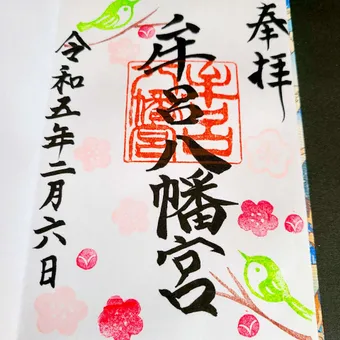 奉拝
牟呂八幡宮
牟呂八幡宮
令和五年二月六日